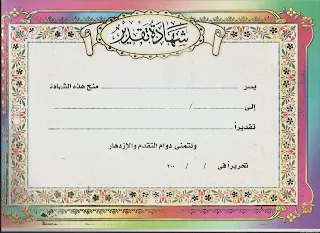 شهادة تقدير
يسر ........ منح هذه الشهادة
إلى ........ / ........
تقديراً ........
ونتمنى دوام التقدم والإزدهار
تحريراً فى / / ٢٠٠